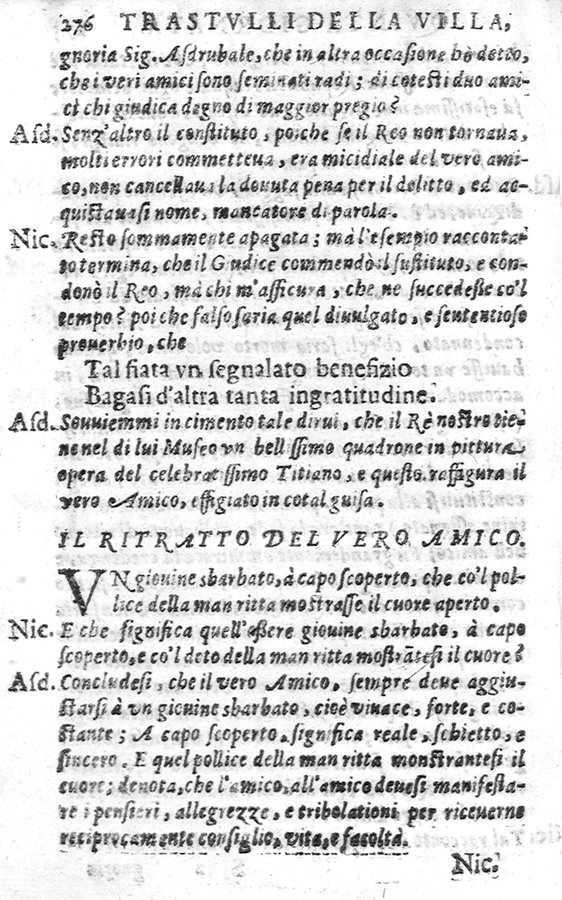 276 TRASTVLLI DELLA VILLA,
gnoria Sig. Asdrubale, che in altra occasione hò detto,
che i veri amici sono seminati radi; di cotesti duo ami-
ci chi giudica degno di maggior pregio?
Asd. Senz'altro il constituto, poiche se il Reo non tornaua,
molti errori commetteua, era micidiale del vero ami-
co, non cancellaua la douuta pena per il delitto, ed ac-
quistauasi nome, mancatore di parola.
Nic. Resto sommamente apagata; ma l'esempio racconta-
to termina, che il Giudice commendò il sustituto, e con-
donò il Reo, mà chi m'assicura, che ne succedesse co'l
tempo? poi che falso saria quel diuulgato, e sententioso
prouerbio, che
Tal fiata vn segnalato benefizio
Bagasi d'altra tanta ingratitudine.
Asd. Souuiemmi in cimento tale dirui, che il Rè nostro tie-
ne nel di lui Museo vn bellissimo quadrone in pittura
opera del celebratissimo Titiano, e questo raffigura il
vero Amico, effigiato in cotal guisa.
IL RITRATTO DEL VERO AMICO.
VN giouine sbarbato, à capo scoperto, che co'l pol-
lice della man ritta mostrasse il cuore aperto.
Nic. E che significa quell'essere giouine sbarbato, à capo
scoperto, e co'l deto della man ritta mostrātesi il cuore?
Asd. Concludesi, che il vero Amico, sempre deue aggiu-
starsi à vn giouine sbarbato, cioè viuace, forte, e co-
stante; A capo scoperto, significa reale, schietto, e
sincero. E quel pollice della man ritta monstrantesi il
cuore; denota, che l'amico, all'amico deuesi manifesta-
re i pensieri, allegrezze, e tribolationi per riceuerne
reciprocamente consiglio, vita, e facoltà.
Nic.